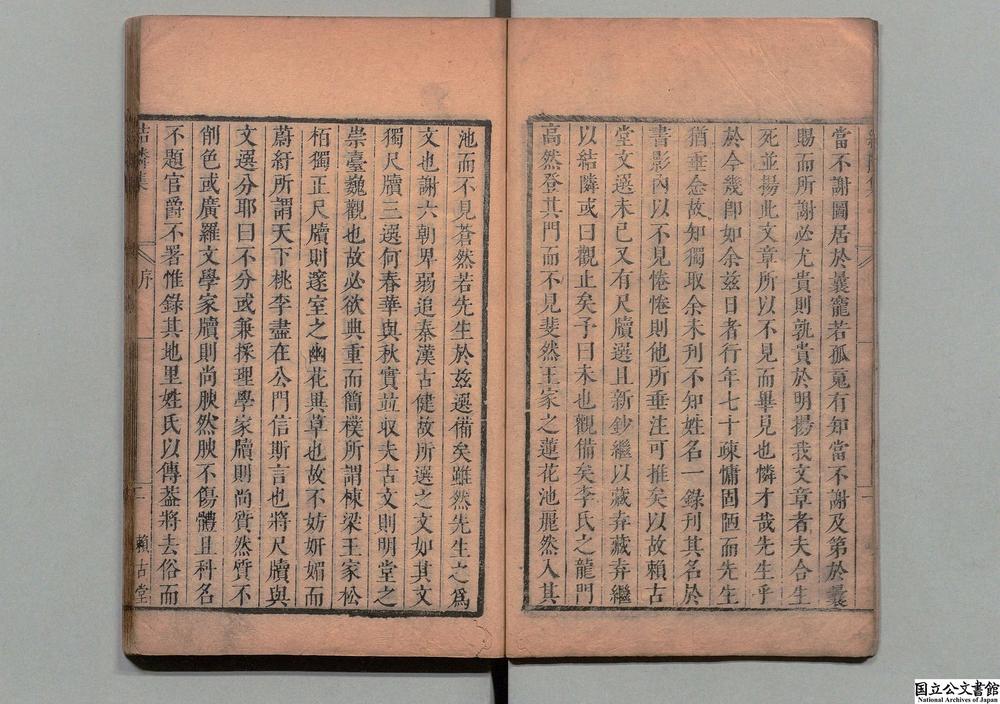 當不謝圖居於曩寵若孤寬有知當不謝及第於曩
賜而所謝必尤貴則孰貴於明揚我文章者夫合生
死並揚此文章所以不見而畢見也憐才哉先生乎
於今幾卽如余茲日者行年七十疎慵固陋而先生
猶垂念故知獨取余未刊不知姓名一錄刊其名於
書影內以不見惓惓則他所垂注可推矣以故賴古
堂文選未已又有尺牘選且新鈔繼以藏弆藏弆繼
以結隣或曰觀止矣予曰未也觀備矣李氏之龍門
高然登其門而不見斐然王家之蓮花池麗然入其
池而不見蒼然若先生於茲選備矣雖然先生之爲
文也謝六朝卑弱追秦漢古健故所選之文如其文
獨尺牘三選何春華與秋實並収夫古文則明堂之
崇臺巍觀也故必欲典重而簡樸所謂棟梁王家松
栢獨正尺牘則邃室之幽花異草也故不妨妍媚而
蔚紆所謂天下桃李盡在公門信斯言也將尺牘與
文選分耶曰不分或兼採理學家牘則尚質然質不
削色或廣羅文學家牘則尚腴然腴不傷體且科名
不題官爵不署惟錄其地里姓氏以傳蓋將去俗而
結隣集
序
賴古堂
国立公文書館
National Archives of Japan